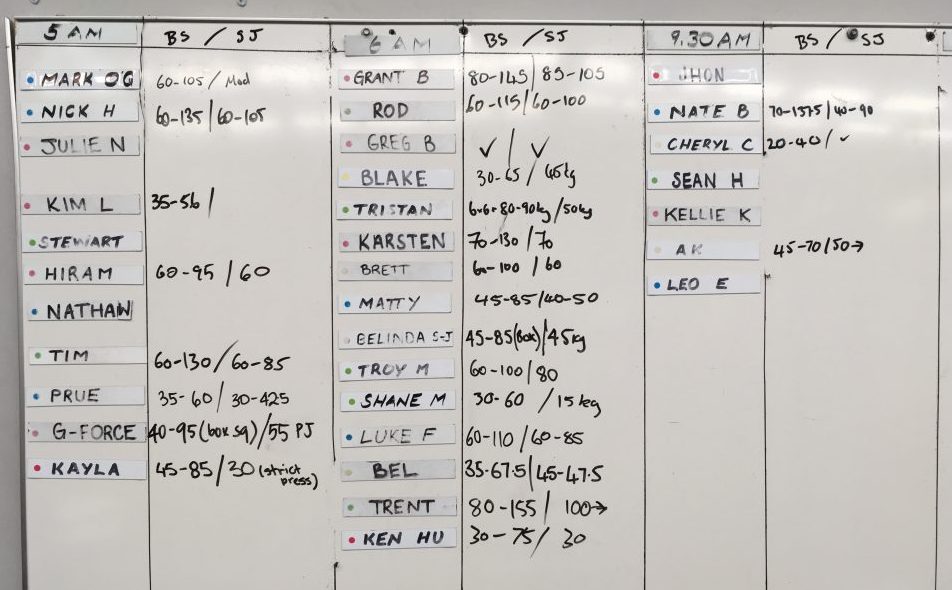 5 AM BS / SJ
MARK O'G 60-105 / Mod
NICK H 60-135 / 60-105
JULIE N
KIM L 35-56 /
STEWART
HIRAM 60-95 / 60
NATHAN
TIM 60-130 / 60-85
PRUE 35-60 / 30-425
G-FORCE 40-95 (box sq) / 55 PJ
KAYLA 45-85 / 30 (strict
press)
6 AM BS / SJ
GRANT B 80-145 / 85-105
ROD 60-115 / 60-100
GREG B ✓ / ✓
BLAKE 30-65 / 45kg
TRISTAN 80-90kg / 50kg
KARSTEN 70-130 / 70
BRETT 60-100 / 60
MATTY 45-85 / 40-50
BELINDA S-J 45-85 (box) / 45kg
TROY M 60-100 / 80
SHANE M 30-60 / 15kg
LUKE F 60-110 / 60-85
BEL 35-67.5 / 45-47.5
TRENT 80-155 / 100→
KEN HU 30-75 / 30
9.30AM BS / SJ
JHON
NATE B 70-1375 / 40-90
CHERYL C 20-40 / ✓
SEAN H
KELLIE K
AK 45-70 / 50→
LEO E